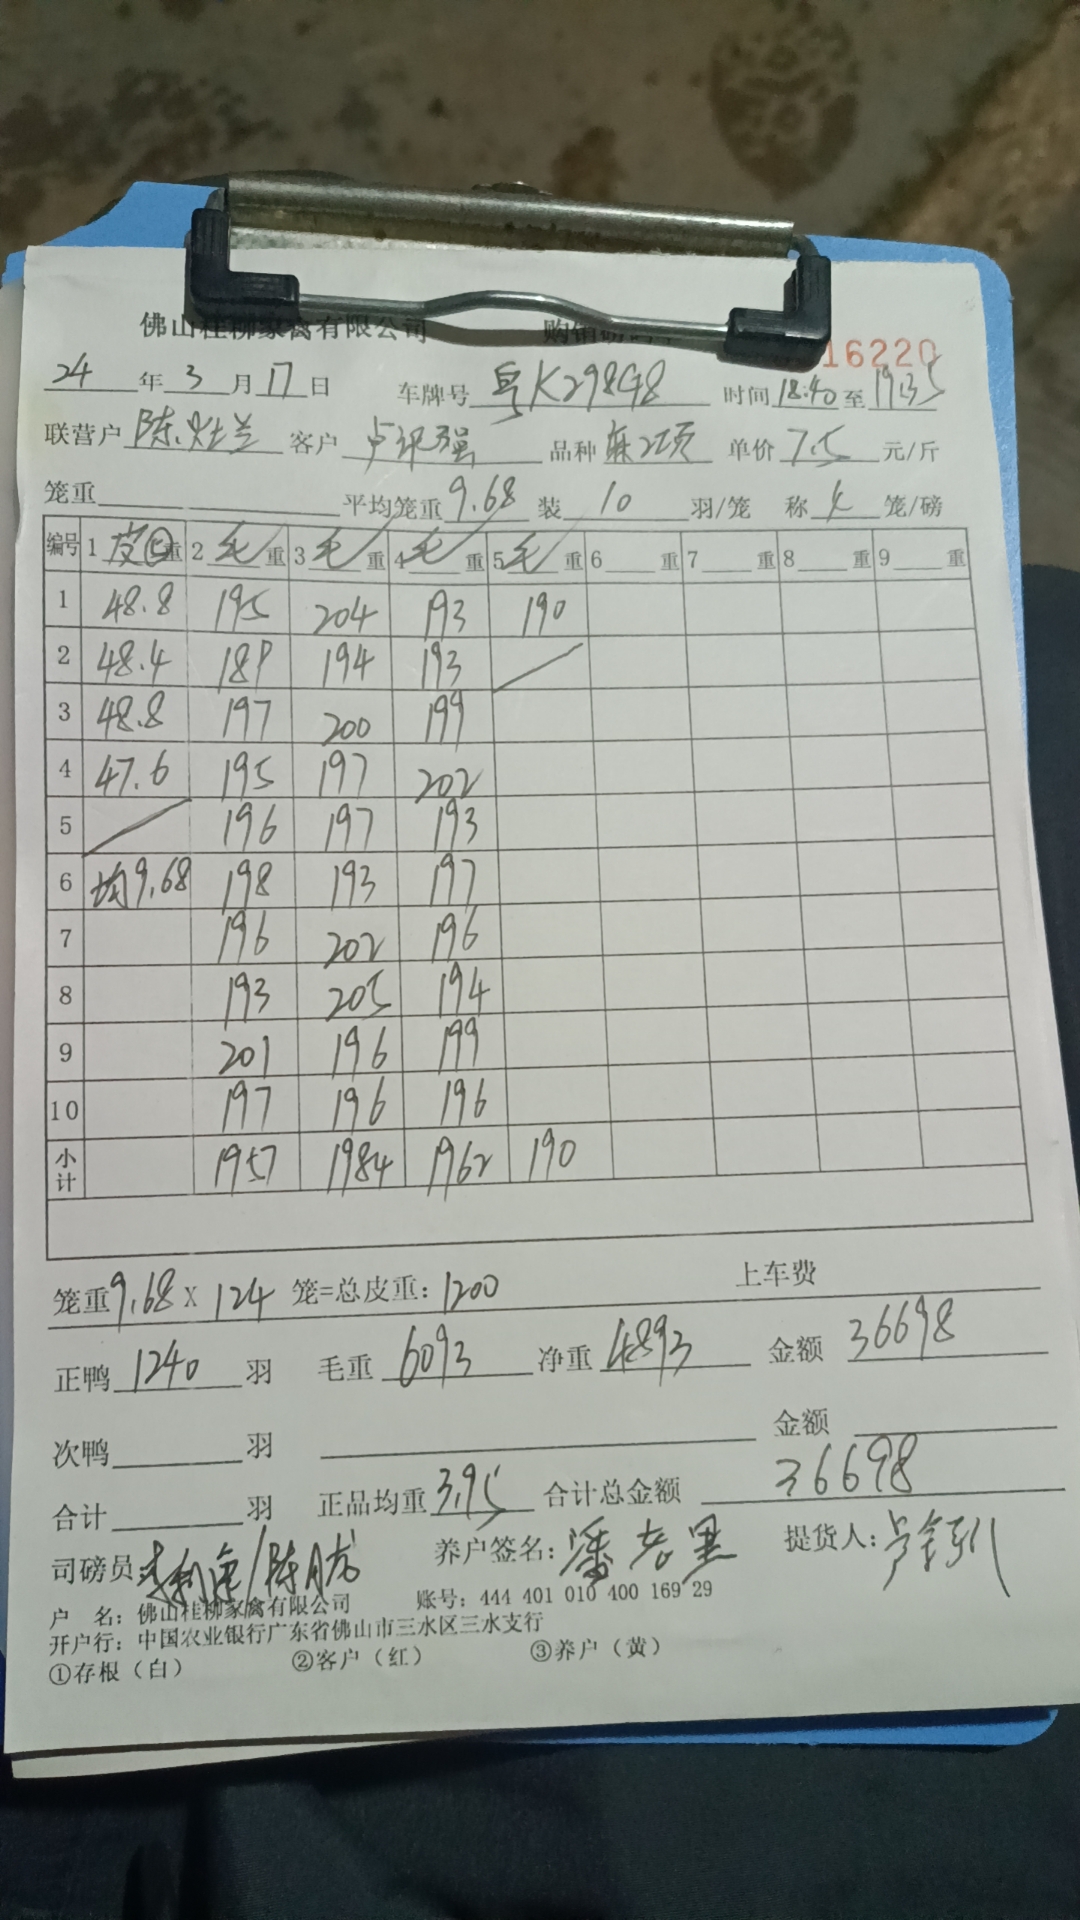 佛山桂柳家禽有限公司 购销磅码单 16220
24年3月17日 车牌号 粤K298G8 时间18:40至19:35
联营户 陈灶兰 客户 卢讯强 品种 麻2项 单价7.5元/斤
笼重 平均笼重9.68 装10羽/笼 称4笼/磅
编号 1皮⑤重 2毛重 3毛重 4毛重 5毛重 6重 7重 8重 9重
1 48.8 195 204 193 190
2 48.4 189 194 193
3 48.8 197 200 199
4 47.6 195 197 202
5 196 197 193
6 均9.68 198 193 197
7 196 202 196
8 193 205 194
9 201 196 199
10 197 196 196
小计 1957 1984 1962 190
笼重9.68X124笼=总皮重：1200 上车费
正鸭1240羽 毛重6093 净重4893 金额36698
次鸭 羽 金额
合计 羽 正品均重3.95 合计总金额36698
司磅员： 养户签名：潘 提货人：卢
户 名：佛山桂柳家禽有限公司 账号：444 401 010 400 169 29
开户行：中国农业银行广东省佛山市三水区三水支行
①存根（白） ②客户（红） ③养户（黄）